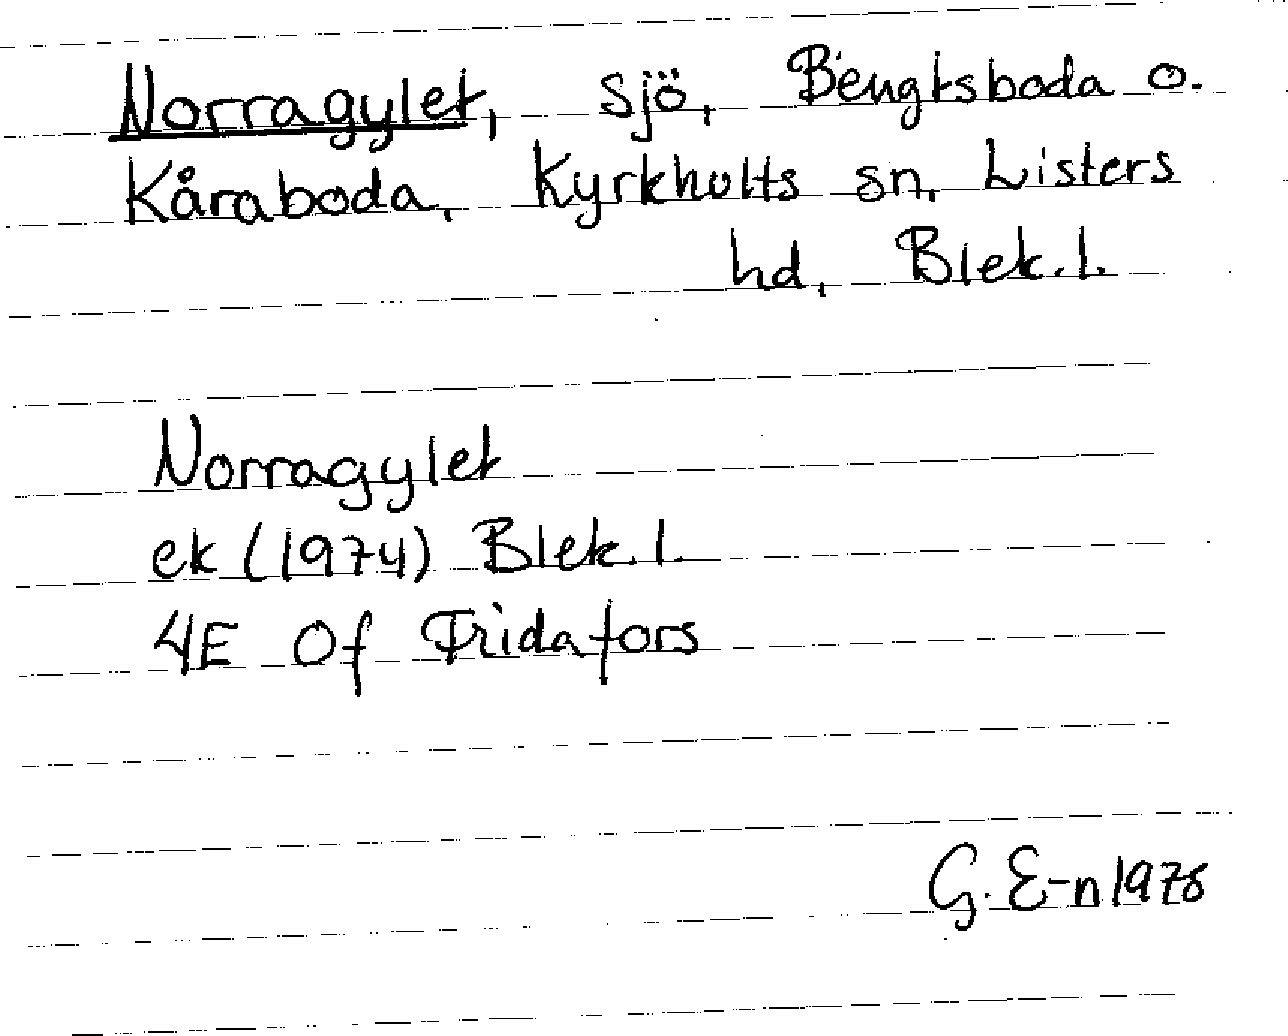 Norragylet, sjö, Bengtsboda o.
Kåraboda, Kyrkhults sn, Listers
hd, Blek. l.
Norragylet
ek (1974) Blek. l.
4E 0f Fridafors
G. E-n 1978